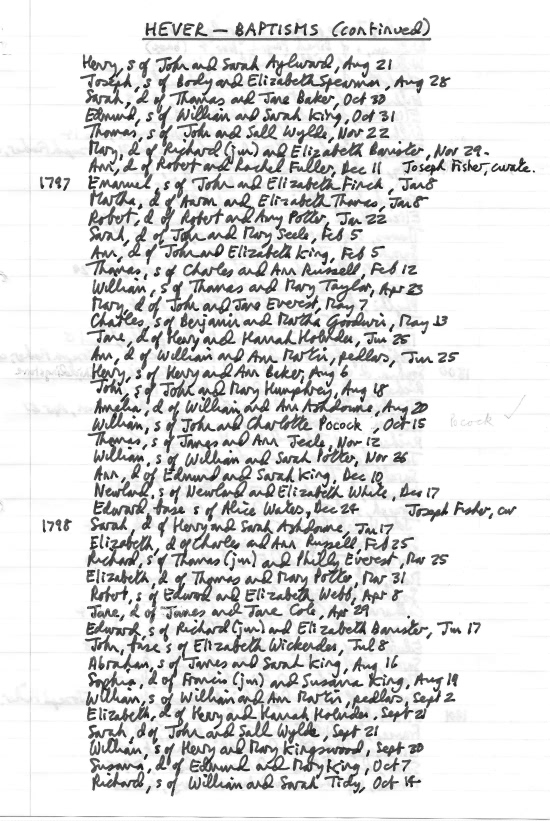 HEVER — BAPTISMS (continued)
Henry, s of John and Sarah Aylward, Aug 21
Joseph, s of Body and Elizabeth Spearman, Aug 28
Sarah, d of Thomas and Jane Baker, Oct 30
Edmund, s of William and Sarah King, Oct 31
Thomas, s of John and Sall Wylde, Nov 22
Mary, d of Richard (jun) and Elizabeth Banister, Nov 29.
Ann, d of Robert and Rachel Fuller, Dec 11 Joseph Fisher, curate.
1797 Emanuel, s of John and Elizabeth Finch, Jan 8
Martha, d of Aaron and Elizabeth Thomas, Jan 8
Robert, d of Robert and Amy Potter, Jan 22
Sarah, d of John and Mary Seele, Feb 5
Ann, d of John and Elizabeth King, Feb 5
Thomas, s of Charles and Ann Russell, Feb 12
William, s of Thomas and Mary Taylor, Apr 23
Mary, d of John and Jane Everest, May 7
Charles, s of Benjamin and Martha Goodwin, May 13
Jane, d of Henry and Hannah Holmden, Jun 25
Ann, d of William and Ann Martin, pedlars, Jun 25
Henry, s of Henry and Ann Baker, Aug 6
John, s of John and Mary Humphrey, Aug 18
Amelia, d of William and Ann Ashdowne, Aug 20
William, s of John and Charlotte Pocock, Oct 15 Pocock ✓
Thomas, s of James and Ann Seele, Nov 12
William, s of William and Sarah Potter, Nov 26
Ann, d of Edmund and Sarah King, Dec 10
Newland, s of Newland and Elizabeth White, Dec 17
Edward, base s of Alice Wates, Dec 24 Joseph Fisher, cur
1798 Sarah, d of Henry and Sarah Ashdowne, Jan 17
Elizabeth, d of Charles and Ann Russell, Feb 25
Richard, s of Thomas (jun) and Philly Everest, Mar 25
Elizabeth, d of Thomas and Mary Potter, Mar 31
Robert, s of Edward and Elizabeth Webb, Apr 8
Jane, d of James and Jane Cole, Apr 29
Edward, s of Richard (jun) and Elizabeth Banister, Jun 17
John, base s of Elizabeth Wickenden, Jul 8
Abraham, s of James and Sarah King, Aug 16
Sophia, d of Francis (jun) and Susanna King, Aug 19
William, s of William and Ann Martin, pedlars, Sept 2
Elizabeth, d of Henry and Hannah Holmden, Sept 21
Sarah, d of John and Sall Wylde, Sept 21
William, s of Henry and Mary Kingswood, Sept 30
Susanna, d of Edmund and Mary King, Oct 7
Richard, s of William and Sarah Tidy, Oct 14